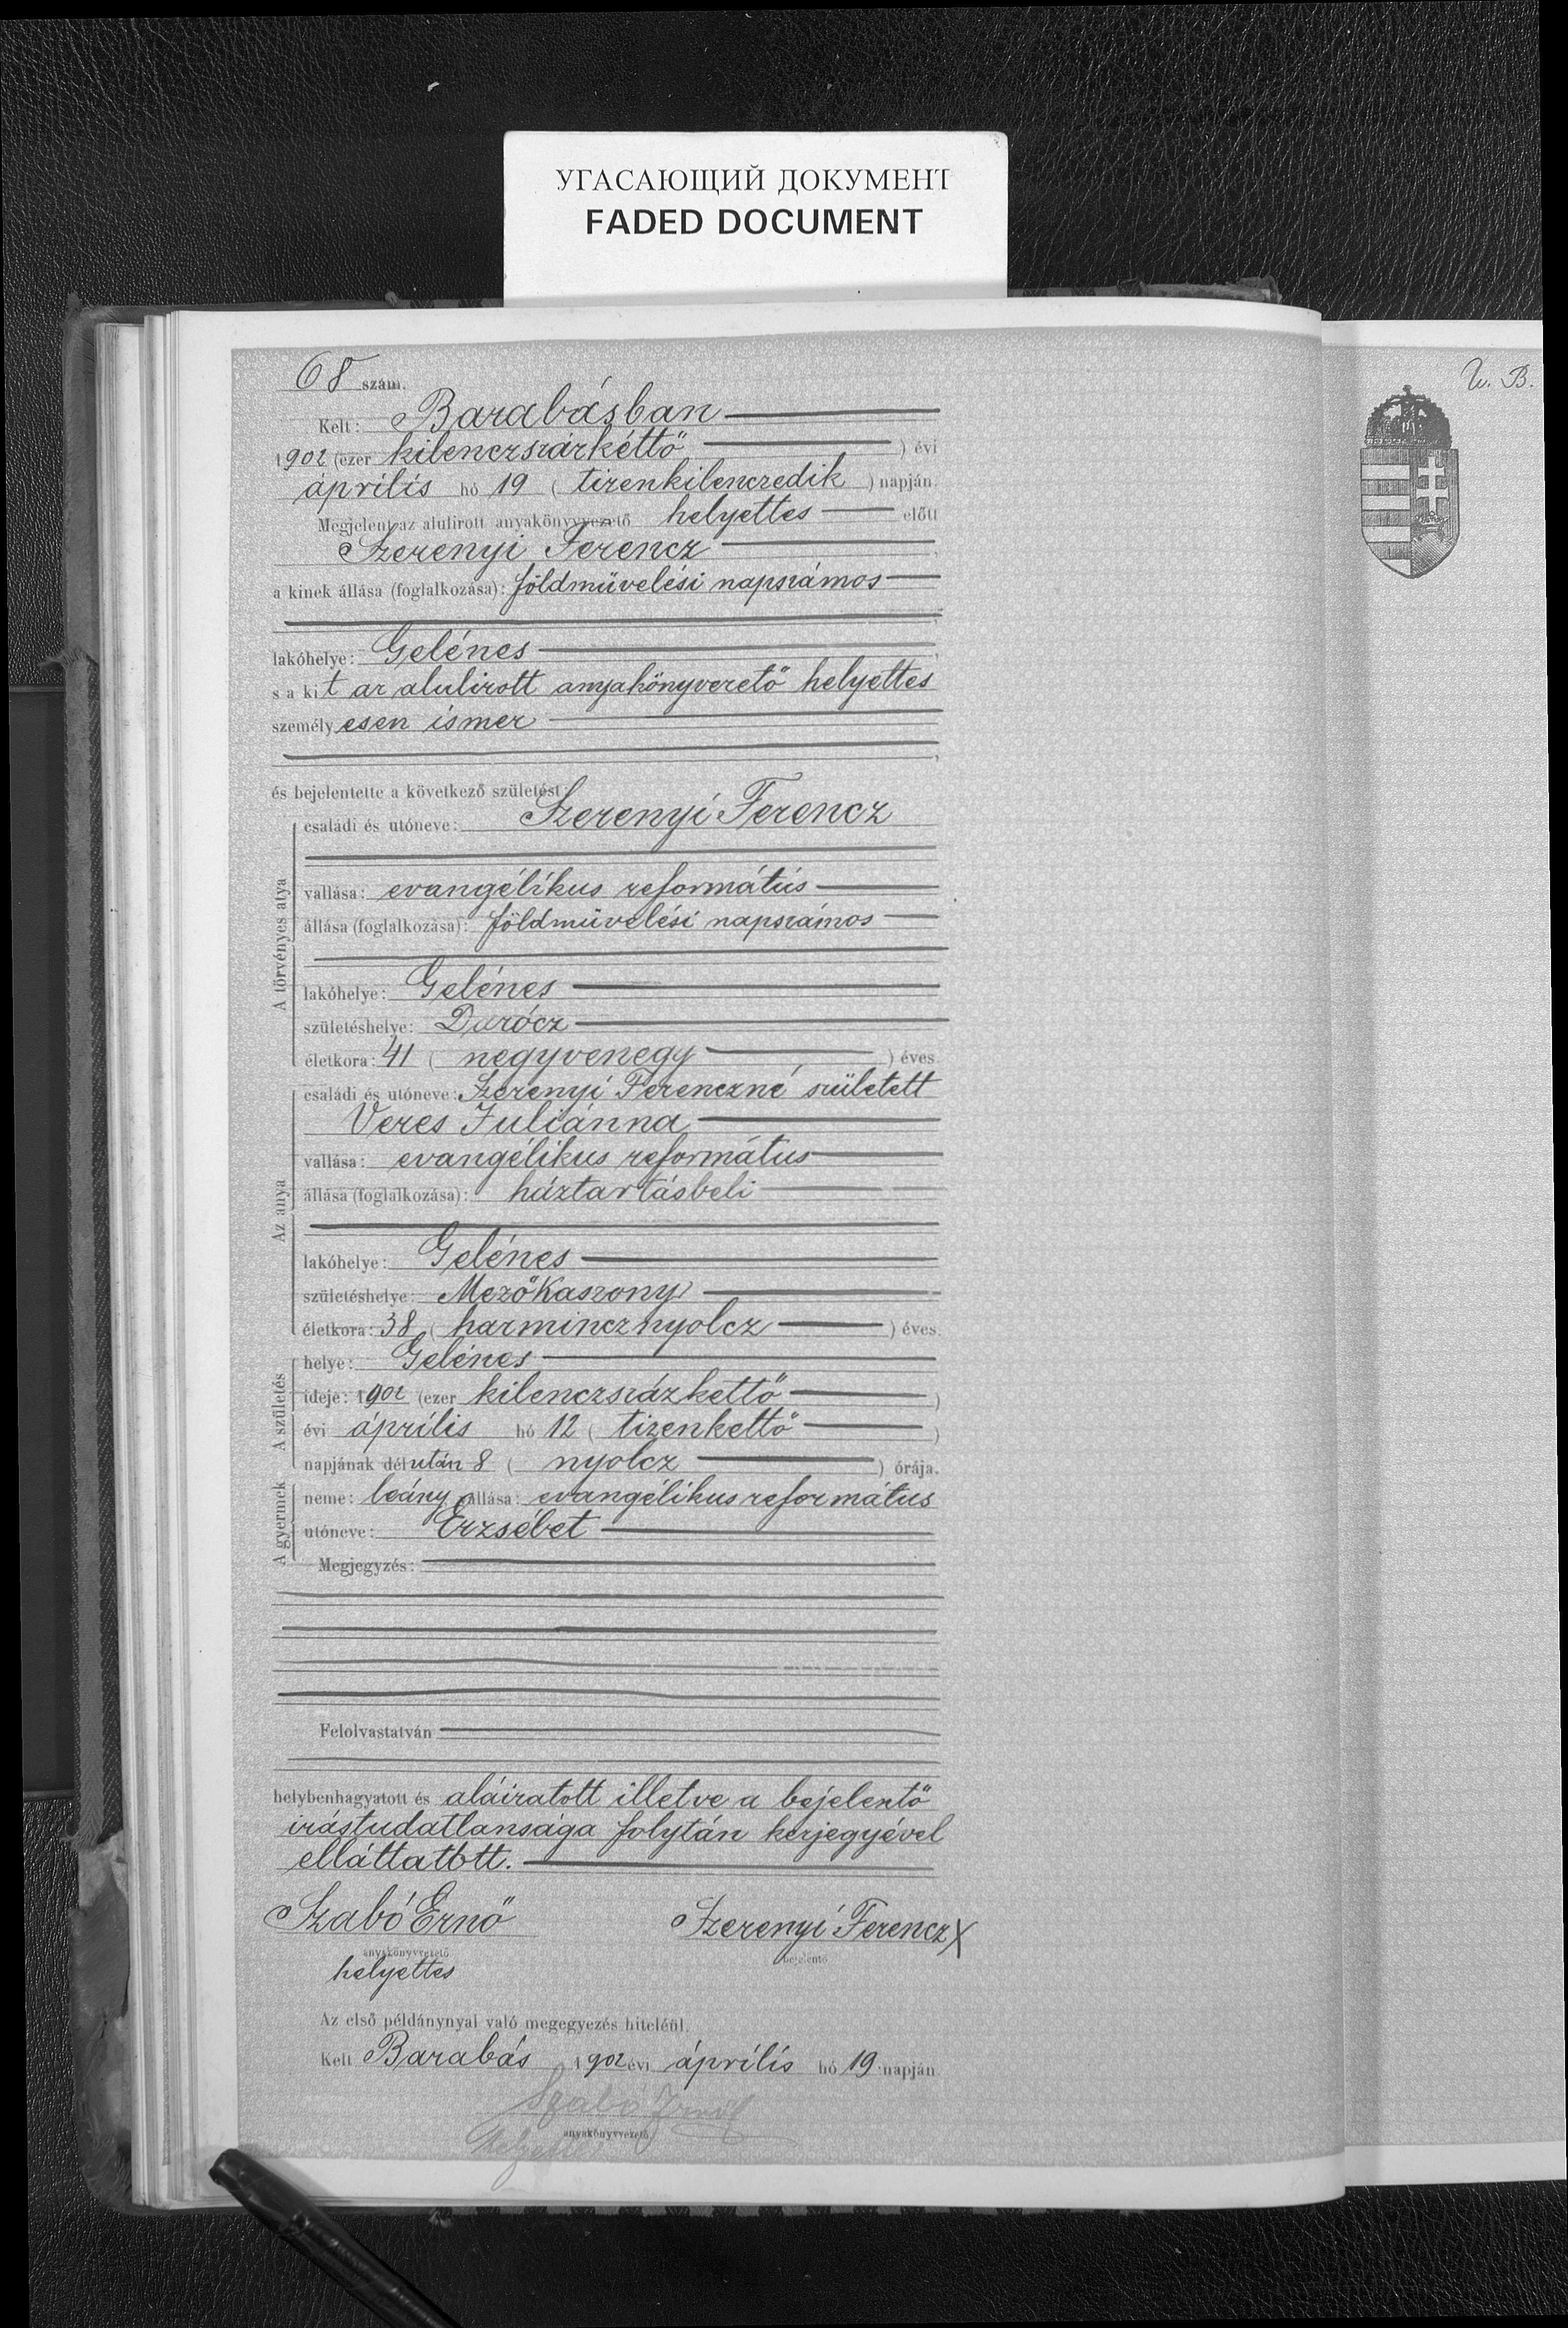 УГАСАЮЩИЙ ДОКУМЕНТ
FADED DOCUMENT
68 szám.
Kelt: Barabásban
1902 (ezer kilenczszázkéttő ) évi
április hó 19 ( tizenkilenczedik ) napján.
Megjelent az alulirott anyakönyvvezető helyettes előtt
Szerenyi Ferencz
a kinek állása (foglalkozása): földmüvelési napszámos
lakóhelye: Gelénes
s a kit az alulirott anyakönyvezető helyettes
személyesen ismer
és bejelentette a következő születést:
A törvényes atya
családi és utóneve: Szerenyi Ferencz
vallása: evangélikus református
állása (foglalkozása): földmüvelési napszámos
lakóhelye: Gelénes
születéshelye: Darócz
életkora: 41 ( negyvenegy ) éves.
Az anya
családi és utóneve: Szerenyi Ferenczné született
Veres Juliánna
vallása: evangélikus református
állása (foglalkozása): háztartásbeli
lakóhelye: Gelénes
születéshelye: Mezőkaszony
életkora: 38 ( harmincznyolcz ) éves.
A születés
helye: Gelénes
ideje: 1902 (ezer kilenczszázkettő )
évi április hó 12 ( tizenkettő )
napjának délután 8 ( nyolcz ) órája.
A gyermek
neme: leány vallása: evangélikus református
utóneve: Erzsébet
Megjegyzés:
Felolvastatván
helybenhagyatott és aláiratott illetve a bejelentő
irástudatlansága folytán kézjegyével
elláttatott.
Szabó Ernő Szerenyi Ferencz X
anyakönyvvezető bejelentő
helyettes
Az első példánynyal való megegyezés hiteléül.
Kelt Barabás 1902 évi április hó 19 napján.
Szabó Ernő
anyakönyvvezető
helyettes
U. B.